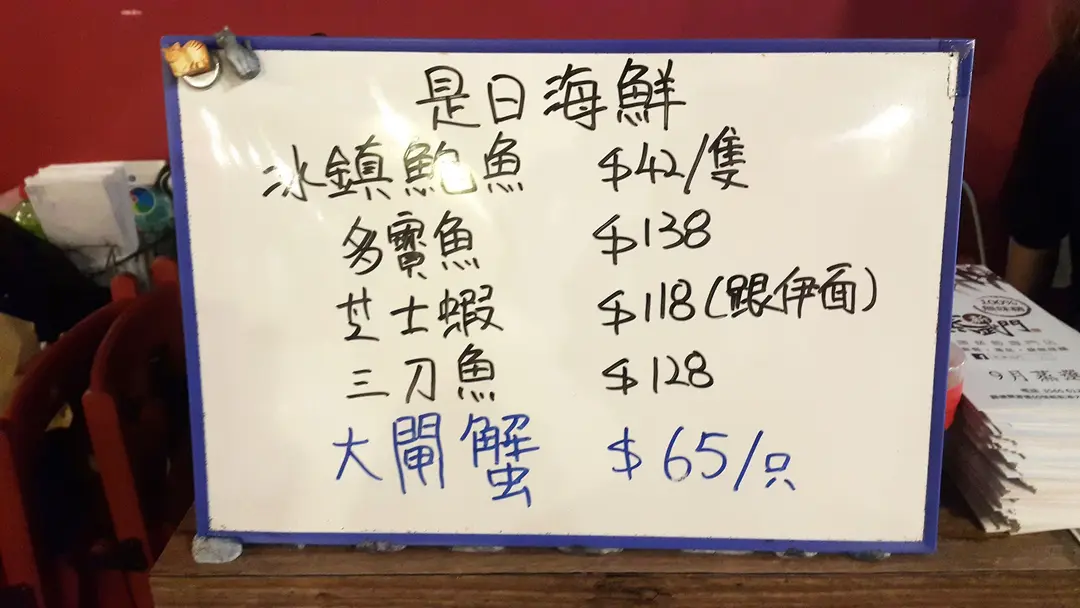 是日海鮮
冰鎮鮑魚 $42/隻
多寶魚 $138
芝士蝦 $118(跟伊面)
三刀魚 $128
大閘蟹 $65/只
100%
門
9月蒸